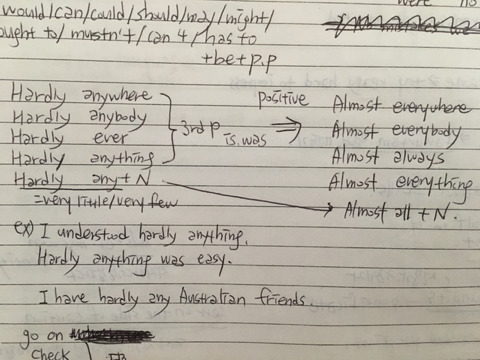 would/can/could/should/may/might/
ought to/mustn't/can 4/has to
+be+p.p
Hardly anywhere
Hardly anybody
Hardly ever
Hardly anything
Hardly any+N
=very little/very few
3rd P
is, was
positive
Almost everywhere
Almost everybody
Almost always
Almost everything
Almost all + N.
ex) I understood hardly anything.
Hardly anything was easy.
I have hardly any Australian friends.
go on
check